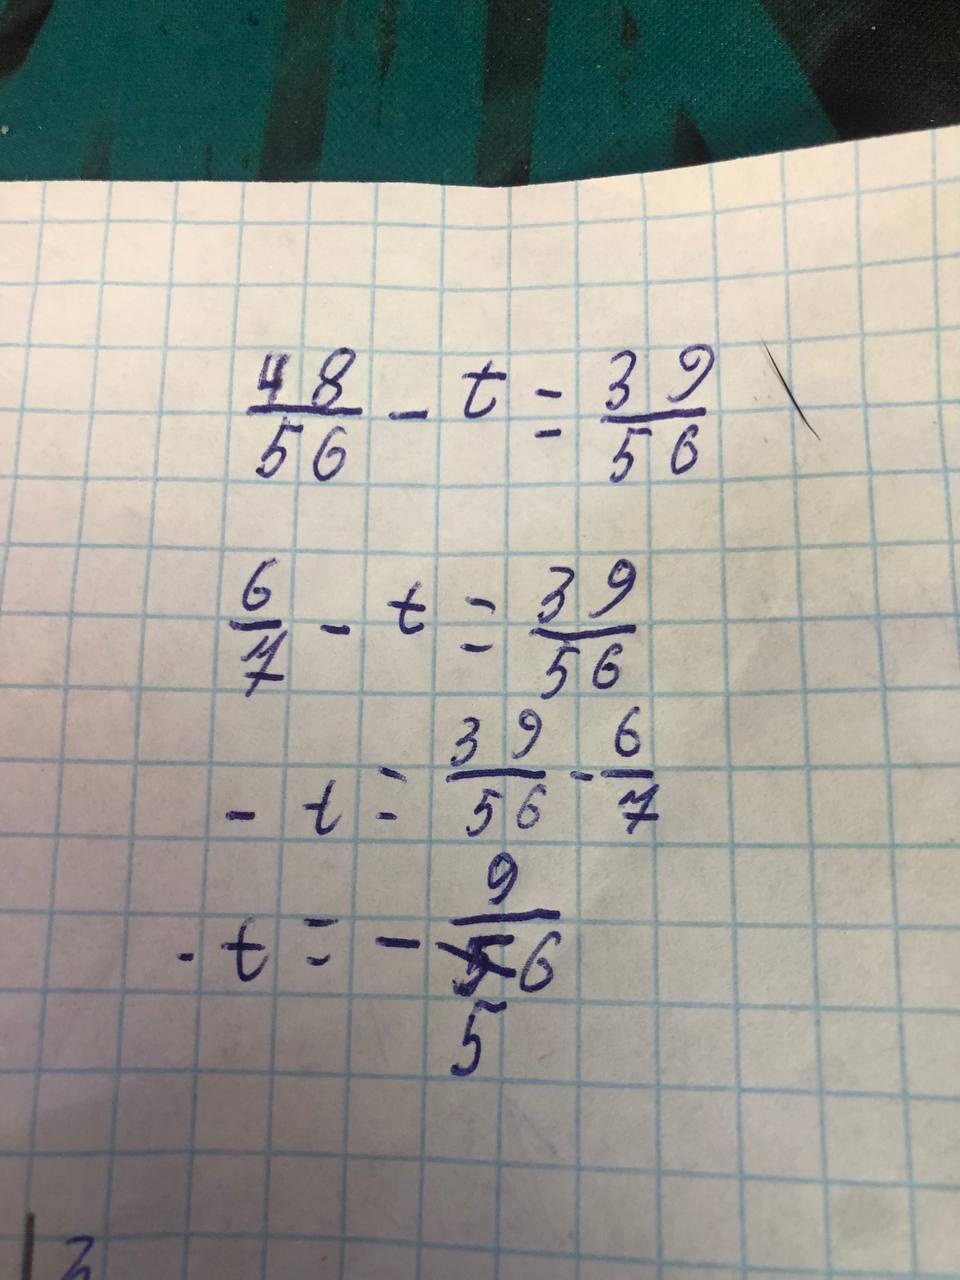 48/56 - t = 39/56
6/7 - t = 39/56
- t = 39/56 - 6/7
- t = - 9/56
3